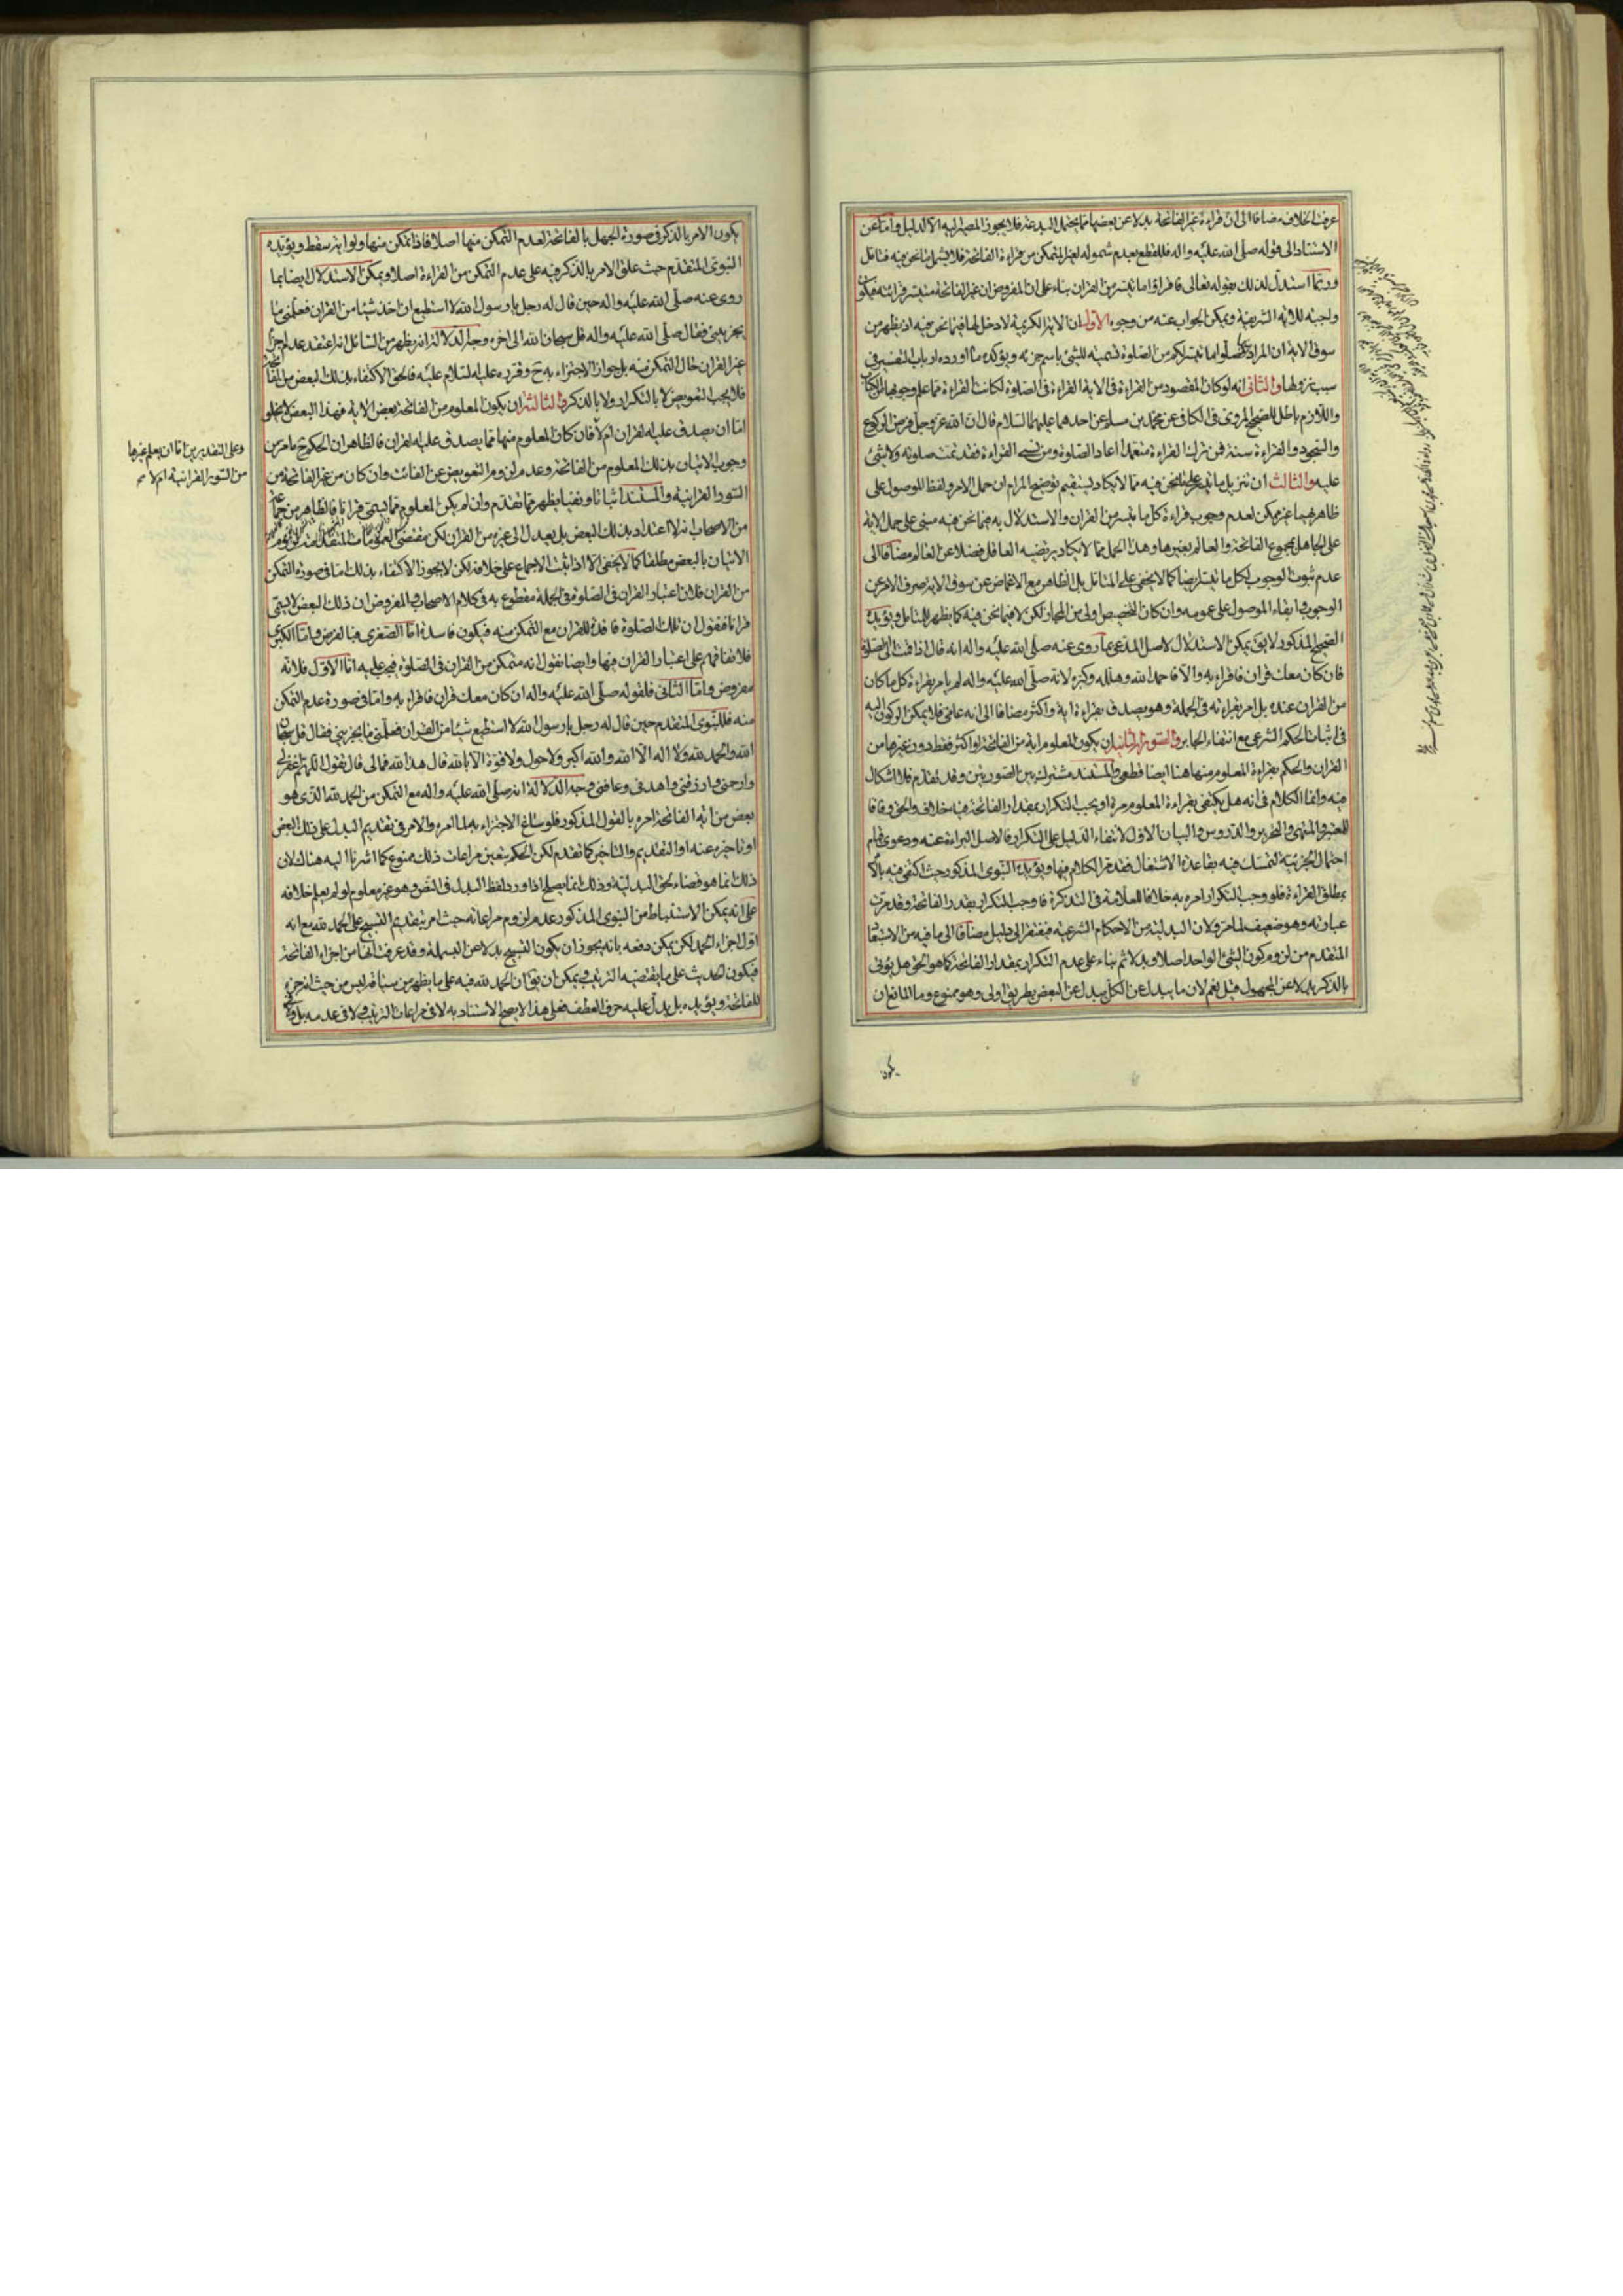 عرفت الخلاف مضافا الى ان قراءة غير الفاتحة بدلا عن بعضها مما يحتمل البدعة فلا يجوز المصير اليه الا لدليل واما عن
الاستناد الى قوله صلى الله عليه واله فللقطع بعدم شموله لغير المتمكن من قراءة الفاتحة فلا يشمل ما نحن فيه فتامل
وربما استدل لذلك بقوله تعالى فاقرؤا ما تيسر من القران بناء على ان المفروض ان غير الفاتحة متيسر قرائته فيكون
ولجبه للاية الشريفة ويمكن الجواب عنه من وجوه الاول ان الاية الكريمة لا دخل لها فيما نحن فيه اذ يظهر من
سوق الاية ان المراد صلوا ما تيسر لكم من الصلوة تسمية للشئ باسم جزئه ويؤكده ما اورده ارباب التفسير في
سبب نزولها والثاني انه لو كان المقصود من القراءة في الاية القراءة في الصلوة لكانت القراءة مما علم وجوبها من الكتاب
واللازم باطل للصحيح المروي في الكافي عن محمد بن مسلم عن احدهما عليهما السلام قال ان الله عز وجل فرض الركوع
والسجود والقراءة سنة فمن ترك القراءة متعمدا اعاد الصلوة ومن نسى القراءة فقد تمت صلوته ولا شئ
عليه والثالث ان تنزيل ما تيسر على ما نحن فيه مما لا يكاد يستقيم توضيح المرام ان حمل الامر ولفظ الموصول على
ظاهرهما غير ممكن لعدم وجوب قراءة كل ما تيسر من القران والاستدلال به فيما نحن فيه مبنى على حمل الاية
على الجاهل بمجموع الفاتحة والعالم بغيرها وهذا الحمل مما لا يكاد يرتضيه العاقل فضلا عن العالم مضافا الى
عدم ثبوت الوجوب لكل ما تيسر ايضا كما لا يخفى على المتامل بل الظاهر مع الاغماض عن سوق الاية صرف الامر عن
الوجوب وابقاء الموصول على عمومه وان كان التخصيص اولى من المجاز لكن لا فيما نحن فيه كما يظهر للمتامل ويؤيده
الصحيح المذكور لا يق يمكن الاستدلال لاصل المدعى بما روى عنه صلى الله عليه واله انه قال اذا قمت الى الصلوة
فان كان معك قران فاقراء به والا فاحمد الله وهلله وكبره لانه صلى الله عليه واله لم يامر بقراءة كل ما كان
من القران عنده بل امر بقراءته في الجملة وهو يصدق بقراءة اية واكثر مضافا الى انه عامى فلا يمكن الركون اليه
في اثبات الحكم الشرعي مع انتفاء الجابر والصورة الثانية ان يكون المعلوم اية من الفاتحة او اكثر فقط دون غيرها من
القران والحكم بقراءة المعلوم منها هنا ايضا قطعي والمستند مشترك بين الصورتين وقد تقدم فلا اشكال
فيه وانما الكلام في انه هل يكتفى بقراءة المعلوم مرة او يجب التكرار بمقدار الفاتحة فيه خلاف والحق وفاقا
للمعتبر والمنتهى والتحرير والدروس والبيان الاول لانتفاء الدليل على التكرار فالاصل البراءة عنه ودعوى قيام
احتمال الجزئية للتمسك فيه بقاعدة الاشتغال فقد مر الكلام فيها ويؤيده النبوى المذكور حيث اكتفى فيه
بمطلق القراءة فلو وجب التكرار امره به خلافا للعلامة في التذكرة فاوجب التكرار بقدر الفاتحة وقد مرت
عبارته وهو ضعيف لما مر ولان البدلية من الاحكام الشرعية فيفتقر الى دليل مضافا الى ما فيه من الاستبعاد
المتقدم من لزوم كون الشئ الواحد اصلا وبدلا ثم بناء على عدم التكرار بمقدار الفاتحة كما هو الحق هل يؤتى
بالذكر بدلا عن المجهول قيل نعم لان ما يبدل عن الكل يبدل عن البعض بطريق اولى وهو ممنوع وما المانع ان
يكون
يكون الامر بالذكر في صورة الجهل بالفاتحة لعدم التمكن منها اصلا فاذا تمكن منها ولو اية سقط ويؤيده
النبوى المتقدم حيث علق الامر بالذكر فيه على عدم التمكن من القراءة اصلا ويمكن الاستدلال ايضا بما
روى عنه صلى الله عليه واله حين قال له رجل يا رسول الله لا استطيع ان اخذ شيئا من القران فعلمنى ما
يجزيني فقال صلى الله عليه واله قل سبحان الله الى اخره وجه الدلالة انه يظهر من السائل انه اعتقد عدم اجزاء
غير القران حال التمكن منه بل جواز الاجتزاء به ح وقرره عليه السلام عليه فالحق الاكتفاء بذلك البعض من الفاتحة
فلا يجب التعويض لا بالتكرار ولا بالذكر والثالثة ان يكون المعلوم من الفاتحة بعض الاية فهذا البعض لا يخلو
اما ان يصدق عليه القران ام لا فان كان المعلوم منها مما يصدق عليه القران فالظاهر ان الحكم ح ما مر من
وجوب الاتيان بذلك المعلوم من الفاتحة وعدم لزوم التعويض عن الفائت وان كان من غير الفاتحة من
السور القرانية والمستند اثباتا ونفيا يظهر مما تقدم وان لم يكن المعلوم مما يسمى قرانا فالظاهر من جماعة
من الاصحاب انه لا اعتداد بذلك البعض بل يعدل الى غيره من القران لكن مقتضى العمومات المتقدمة لزوم
الاتيان بالبعض مطلقا كما لا يخفى الا اذا ثبت الاجماع على خلافه لكن لا يجوز الاكتفاء بذلك اما في صورة التمكن
من القران فلان اعتبار القران في الصلوة في الجملة مقطوع به في كلام الاصحاب والمفروض ان ذلك البعض لا يسمى
قرانا فنقول ان تلك الصلوة فاقدة للقران مع التمكن منه فيكون فاسدة اما الصغرى فبالفرض واما الكبرى
فلاتفاقهم على اعتبار القران فيها وايضا نقول انه متمكن من القران في الصلوة فيجب عليه اما الاول فلانه
مفروض واما الثاني فلقوله صلى الله عليه واله ان كان معك قران فاقراء به واما في صورة عدم التمكن
منه فللنبوى المتقدم حين قال له رجل يا رسول الله لا استطيع شيئا من القران فعلمنى ما يجزيني فقال قل سبحان
الله والحمد لله ولا اله الا الله والله اكبر ولا حول ولا قوة الا بالله قال هذا لله فمالى قال تقول اللهم اغفر لي
وارحمنى وارزقنى واهدنى وعافنى وجه الدلالة انه صلى الله عليه واله مع التمكن من الحمد لله الذى هو
بعض من اية الفاتحة امره بالقول المذكور فلو ساغ الاجتزاء به لما امره والامر في تقديم البدل على ذلك البعض
او تاخيره عنه او التقديم والتاخير كما تقدم لكن الحكم بتعين مراعات ذلك ممنوع كما اشرنا اليه هناك لان
ذلك انما هو قضاء لحق البدلية وذلك انما يصلح اذا ورد لفظ البدل في النص وهو غير معلوم لو لم يعلم خلافه
على انه يمكن الاستنباط من النبوى المذكور عدم لزوم مراعاته حيث امر بتقديم التسبيح على الحمد لله مع انه
اول اجزاء الحمد لكن يمكن دفعه بانه يجوز ان يكون التسبيح بدلا عن البسملة وقد عرفت انها من اجزاء الفاتحة
فيكون الحديث على ما يقتضيه الترتيب ويمكن ان يق ان الحمد لله فيه على ما يظهر من سياقه ليس من حيث انه جزء
للفاتحة ويؤيده بل يدل عليه حرف العطف فعلى هذا لا يصح الاستناد به لا في مراعات الترتيب ولا في عدمه
وعلى التقديرين اما ان يعلم غيرها
من السور القرانية ام لا صح